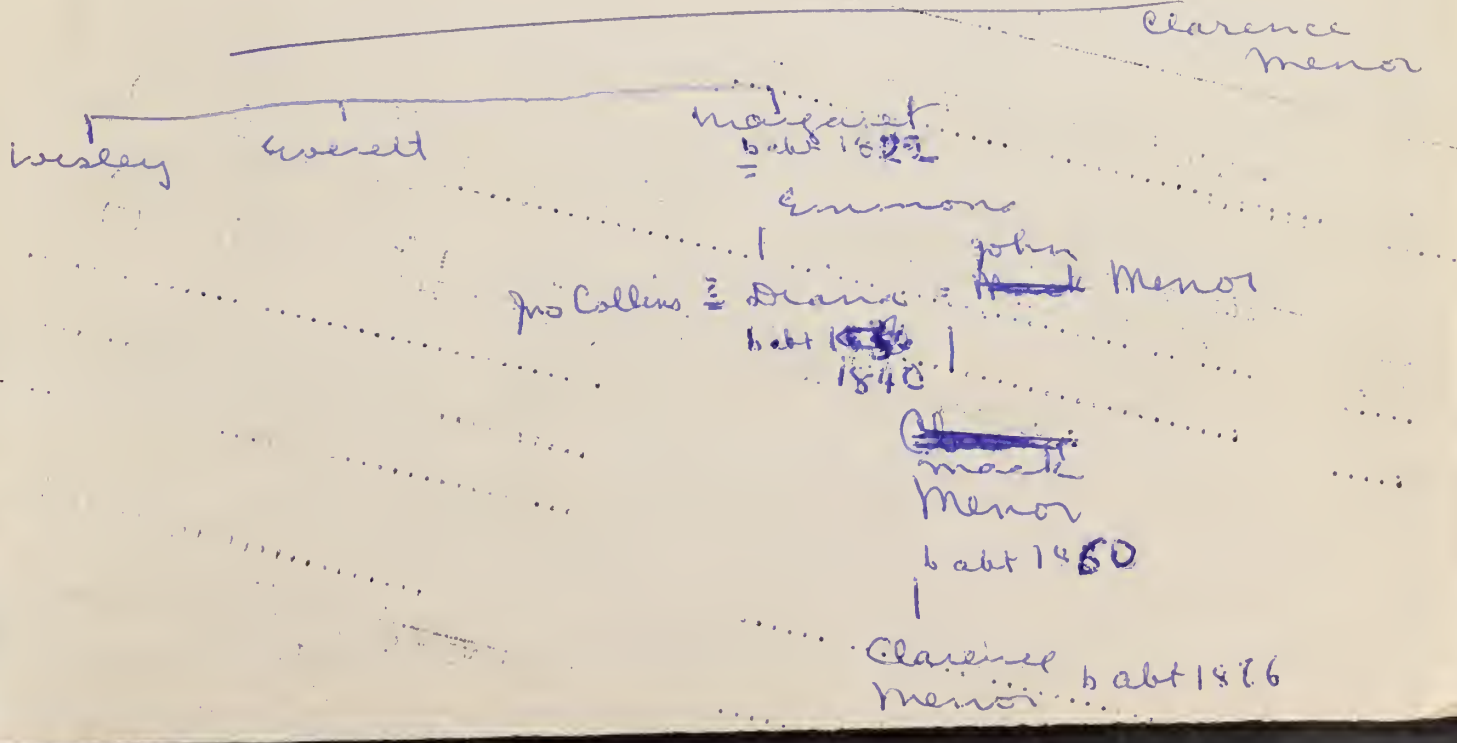 Clarence
Menor
Wesley Everett Margaret
b abt 1822
Emmons
John
Jno Collins = Diana = Mack Menor
b abt
1840
Mack
Menor
b abt 1860
Clarence b abt 1886
Menor